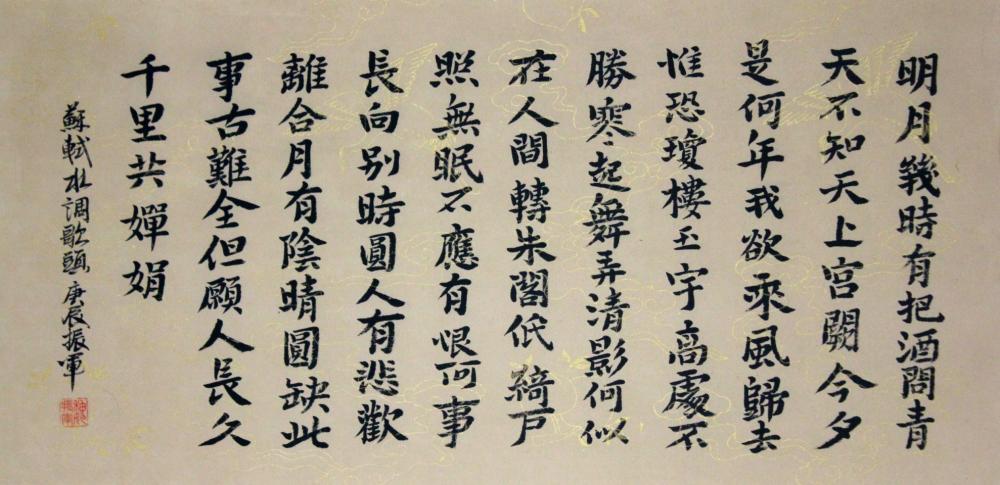 明月幾時有把酒問青
天不知天上宫闕今夕
是何年我欲乘風歸去
惟恐瓊樓玉宇高處不
勝寒起舞弄清影何似
在人間轉朱閣低綺戶
照無眠不應有恨何事
長向别時圓人有悲歡
離合月有陰晴圓缺此
事古難全但願人長久
千里共嬋娟
蘇軾水調歌頭庚辰振軍